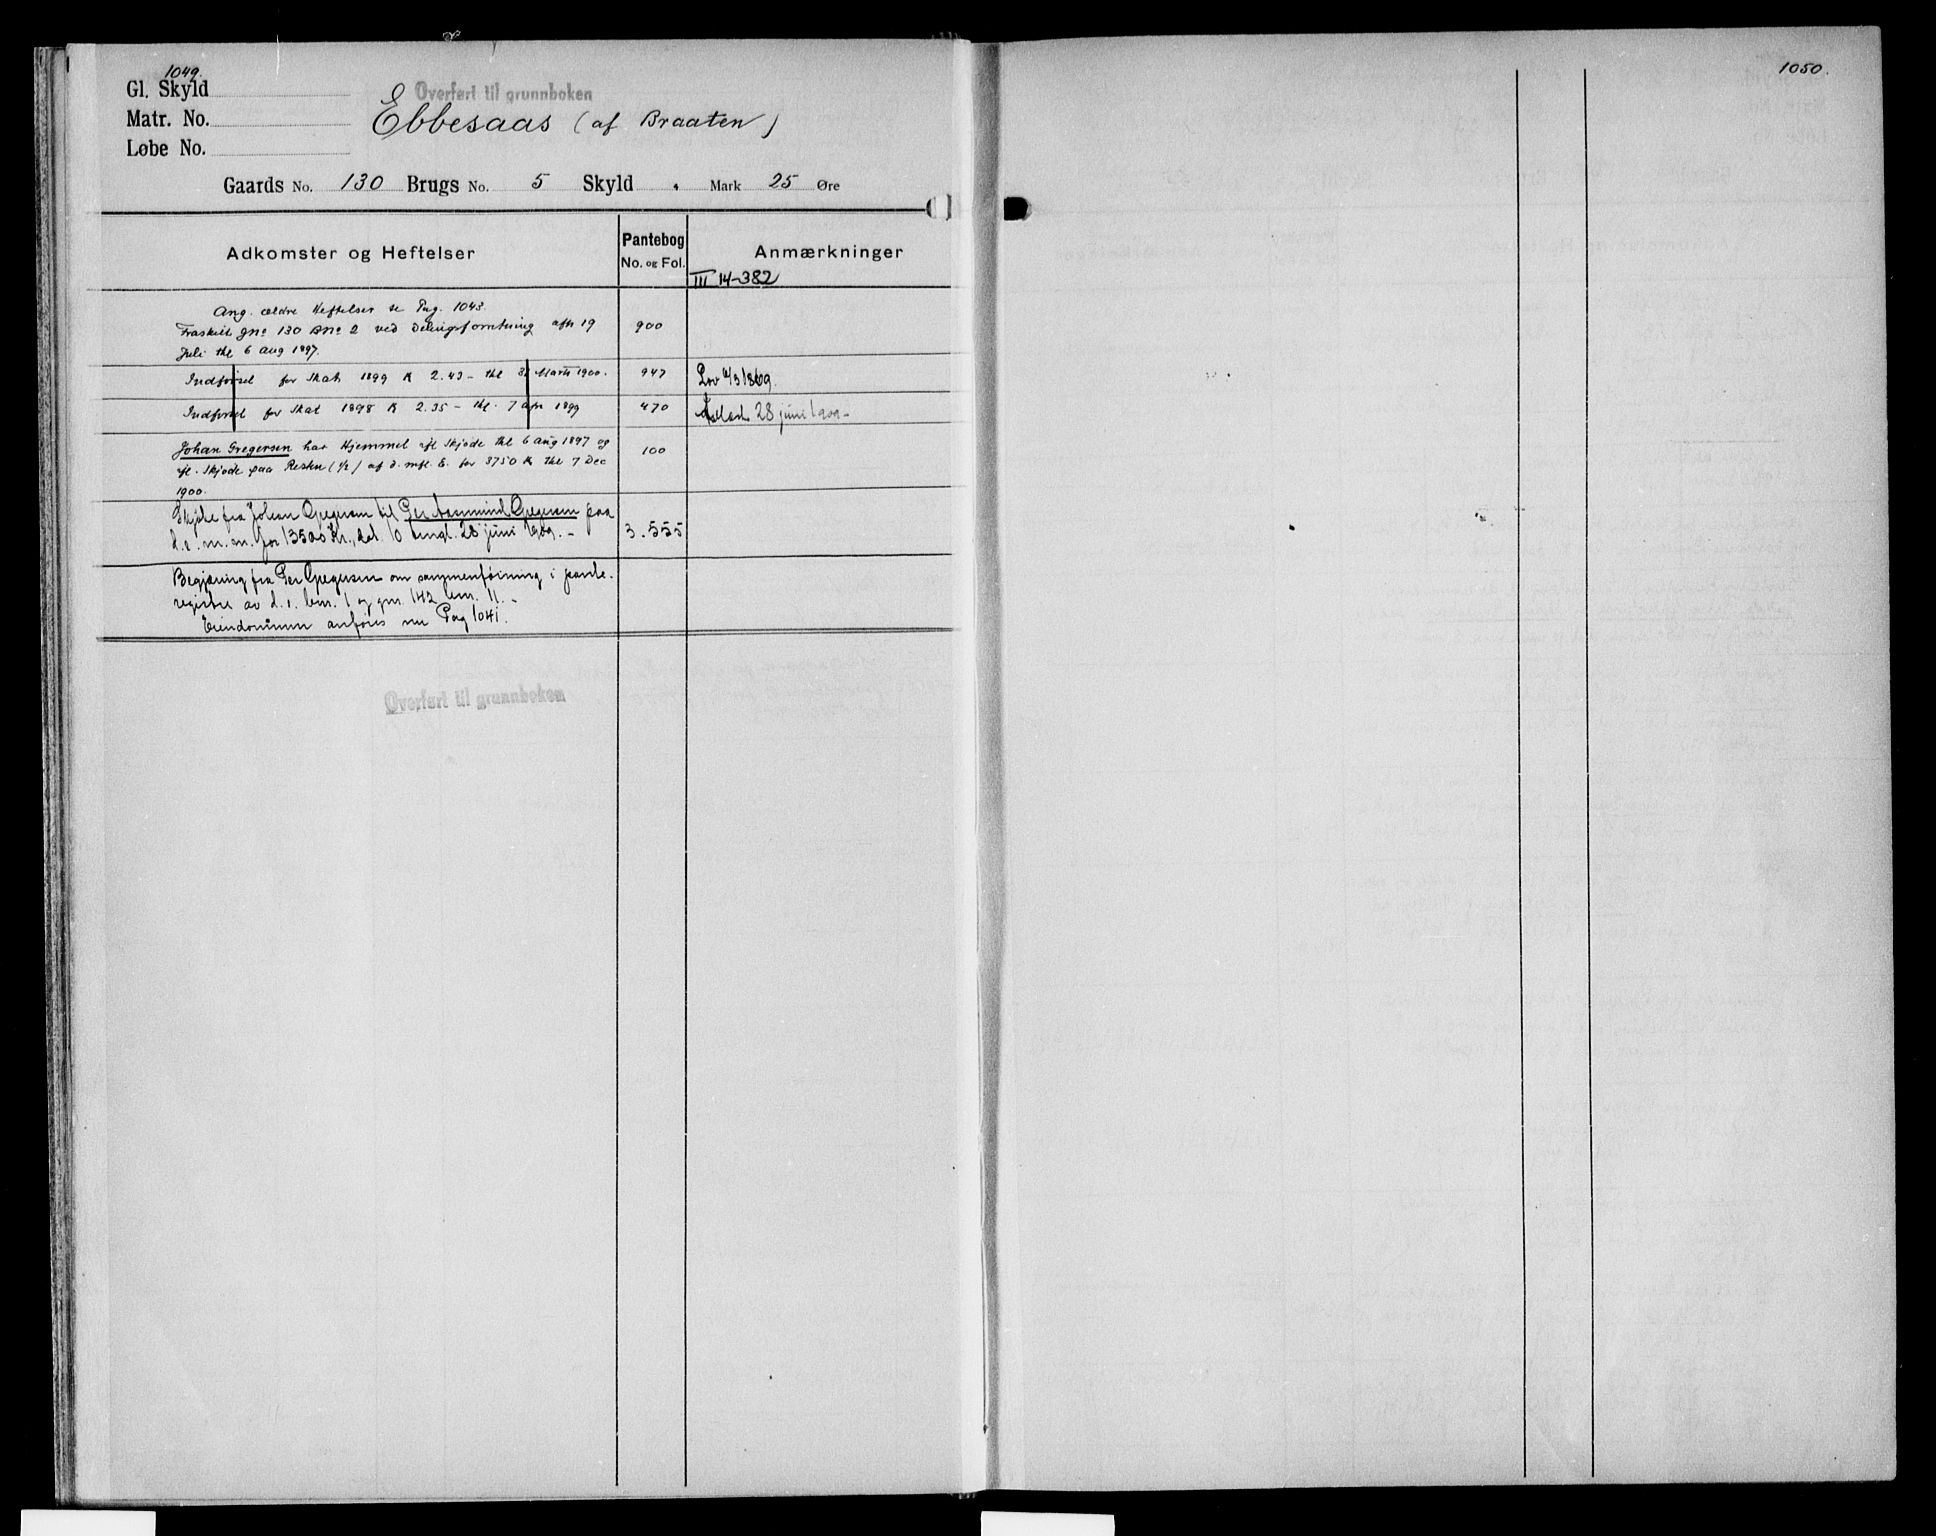 1049.
Gl. Skyld
Overført til grunnboken
Matr. No.
Ebbesaas (af Braaten)
Løbe No.
Gaards No. 130 Brugs No. 5 Skyld . Mark 25 Øre
Adkomster og Heftelser
Pantebog
No. og Fol.
Anmærkninger
III 14-382
Ang. ældre Heftelser se Pag. 1043.
Fraskilt gno 130 Bno 2 ved Delingsforretning afh 19 900
Juli thl 6 Aug 1897.
Indførsel for Skat 1899 K 2.43 - thl 31 Marts 1900. 947 Lov 6/3 1869.
Indførsel for Skat 1898 K 2.35 - thl. 7 apr 1899 470 28 juni 1909 -
Johan Gregersen har Hjemmel efl Skjøde thl 6 Aug 1897 og 100
efl. Skjøde paa Resten (1/2) af d. mfl. E. for 3750 K thl 7 Dec
1900.
Skjøte fra Johan Gregersen til Per Aasmund Gregersen paa
d.e. m. m. for 13500 Kr., dat. 10 tingl. 28 juni 1909. - 3.555
Begjæring fra Per Gregersen om sammenføining i pante-
registret av d.e. bnr. 1 og gnr. 142 bnr. 11. -
Eiendommen anføres nu Pag 1041.
Overført til grunnboken
1050.